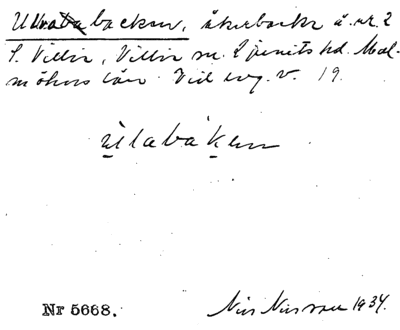 Ullabacken, åkerbacke å nr 2
S. Villie, Villie sn. Ljunits hd. Mal-
möhus län. Vid väg. V. 19.
ùlabàken
Nr 5668. Nils Nilsson 1934.